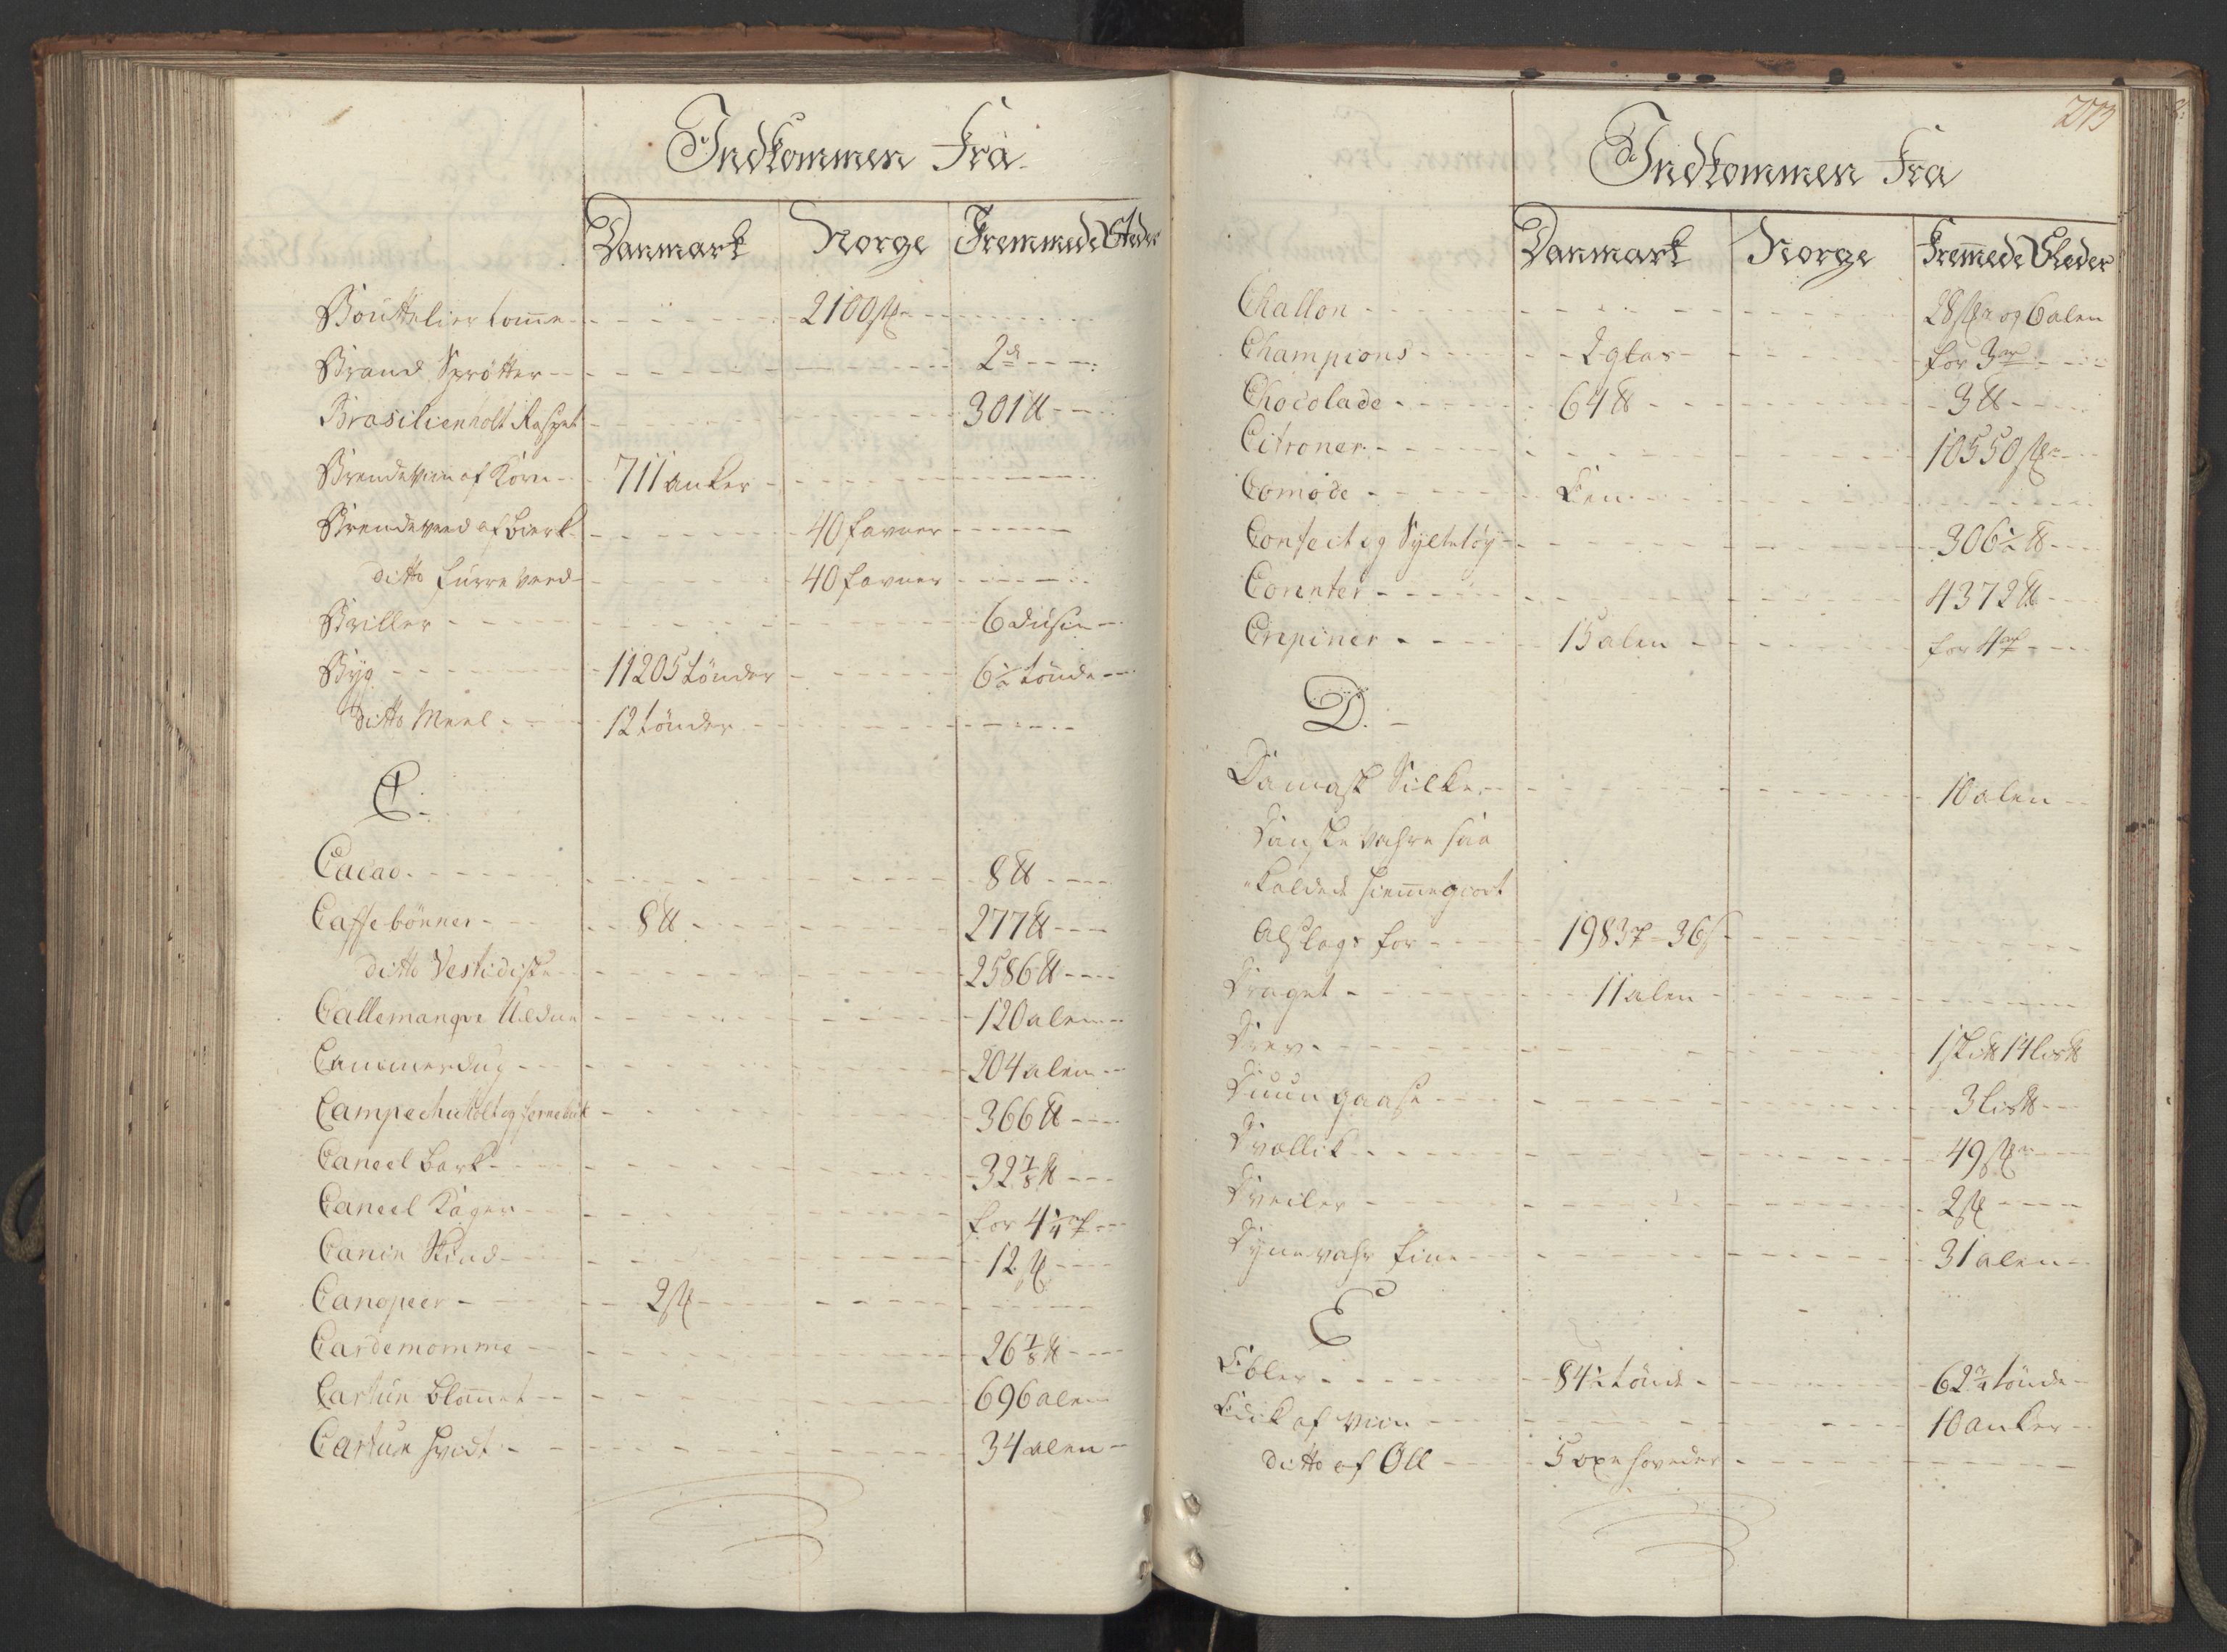 Indkommen Fra
Danmark Norge Fremmede Steder
Bouttelier tomme 2100 st.
Brand Sprötter 2
Brasilienholt Raspet 301 ℔
Brendeviin af Korn 711 anker
Brendeveed af Birk 40 favner
ditto furre veed 40 favner
Briller 6 dusin
Byg 11205 tönder 6½ tönde
ditto Meel 12 tönder
C.
Cacao 8 ℔
Caffebönner 8 ℔ 277 ℔
ditto Vestidiske 2586 ℔
Callemanqve Uldne 120 alen
Cammerdug 204 alen
Campecheholt og 366 ℔
Caneel Bark 32⅞ ℔
Caneel Kager for 4¼
Canin Skind 12 st.
Canopeer 2 st.
Cardemomme 26⅞ ℔
Cartun Blommet 696 alen
Cartun hvidt 34 alen
273
Indkommen Fra
Danmark Norge Fremmede Steder
Challon 28 st. og 6 alen
Champions 2 glas for 3
Chocolade 64 ℔ 3 ℔
Citroner 10550 st.
Comode Een
Confect og Sylttetöy 306½ ℔
Corenter 4372 ℔
Crepiner 15 alen for 4
D.
Damask Silke 10 alen
Danske Vahre saa
kaldede hiemmegiort
Alslags for 1983 - 36
Draget 11 alen
Drev 1 14 lis℔
Duun gaase 3 lis℔
Dvallik 49 st.
Dveiler 2 st.
Dynevahr fine 31 alen
E
Ebler 84½ tönde 62¾ tönde
Edik af Viin 10 anker
ditto af Öll 5 oxehoveder